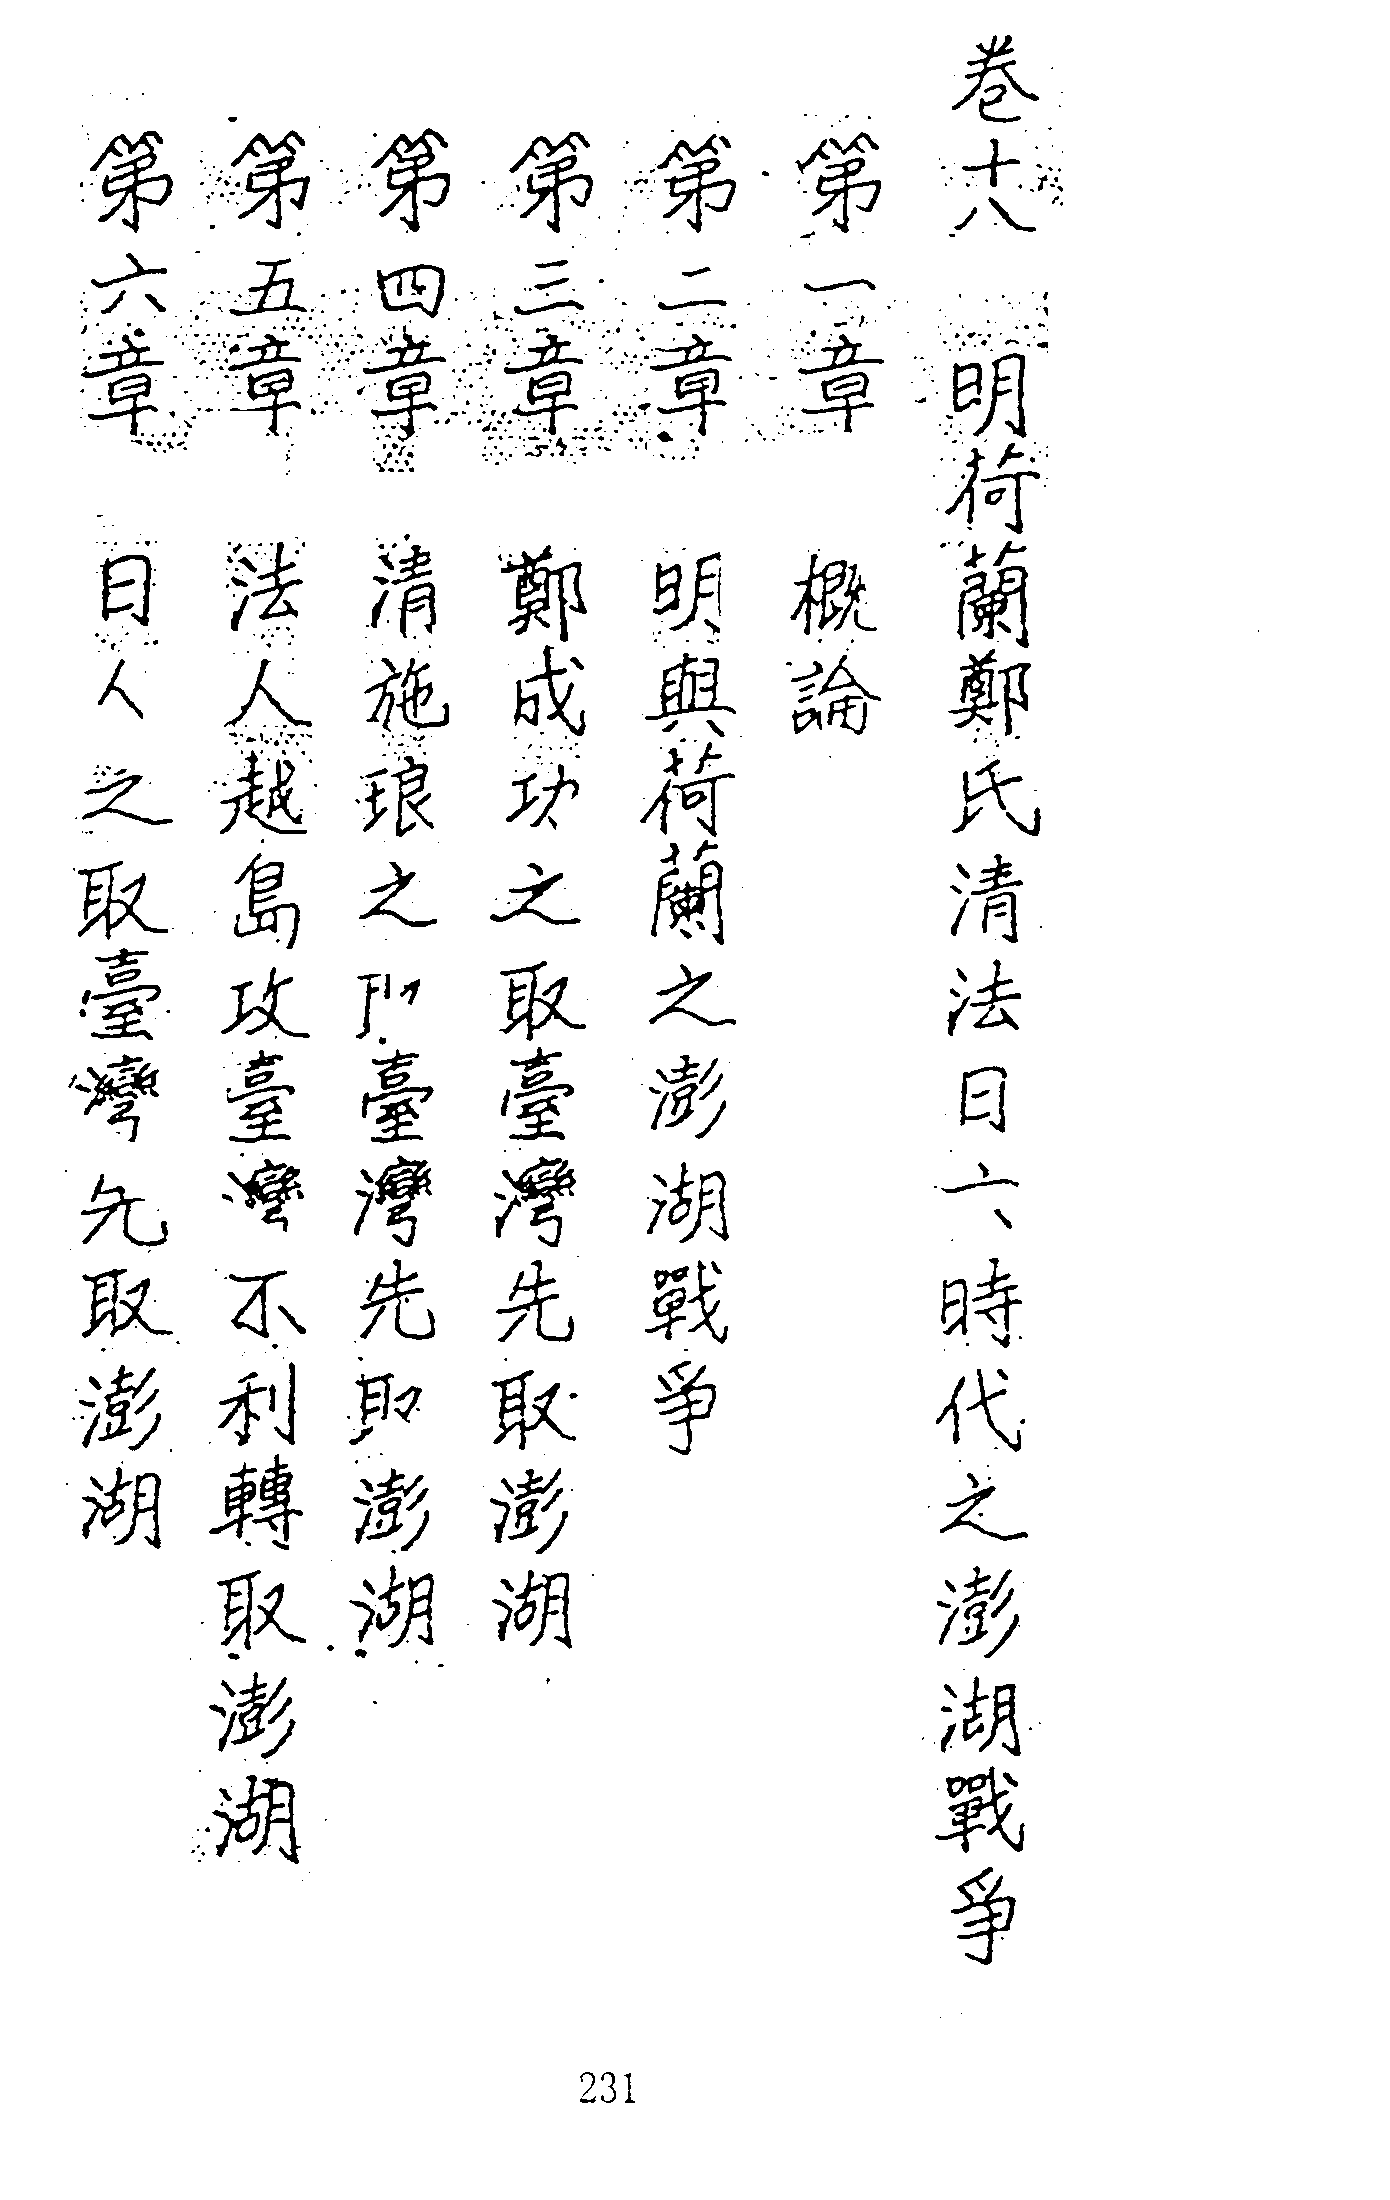 卷十八　明荷蘭鄭氏清法日六時代之澎湖戰爭
第一章　概論
第二章　明與荷蘭之澎湖戰爭
第三章　鄭成功之取臺灣先取澎湖
第四章　清施琅之取臺灣先取澎湖
第五章　法人越島攻臺灣不利轉取澎湖
第六章　日人之取臺灣先取澎湖
231